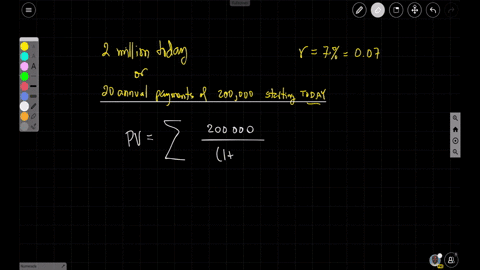 2 million today
r = 7% = 0.07
or
20 annual payments of 200,000 starting TODAY
PV = ∑ 200 000 / (1+